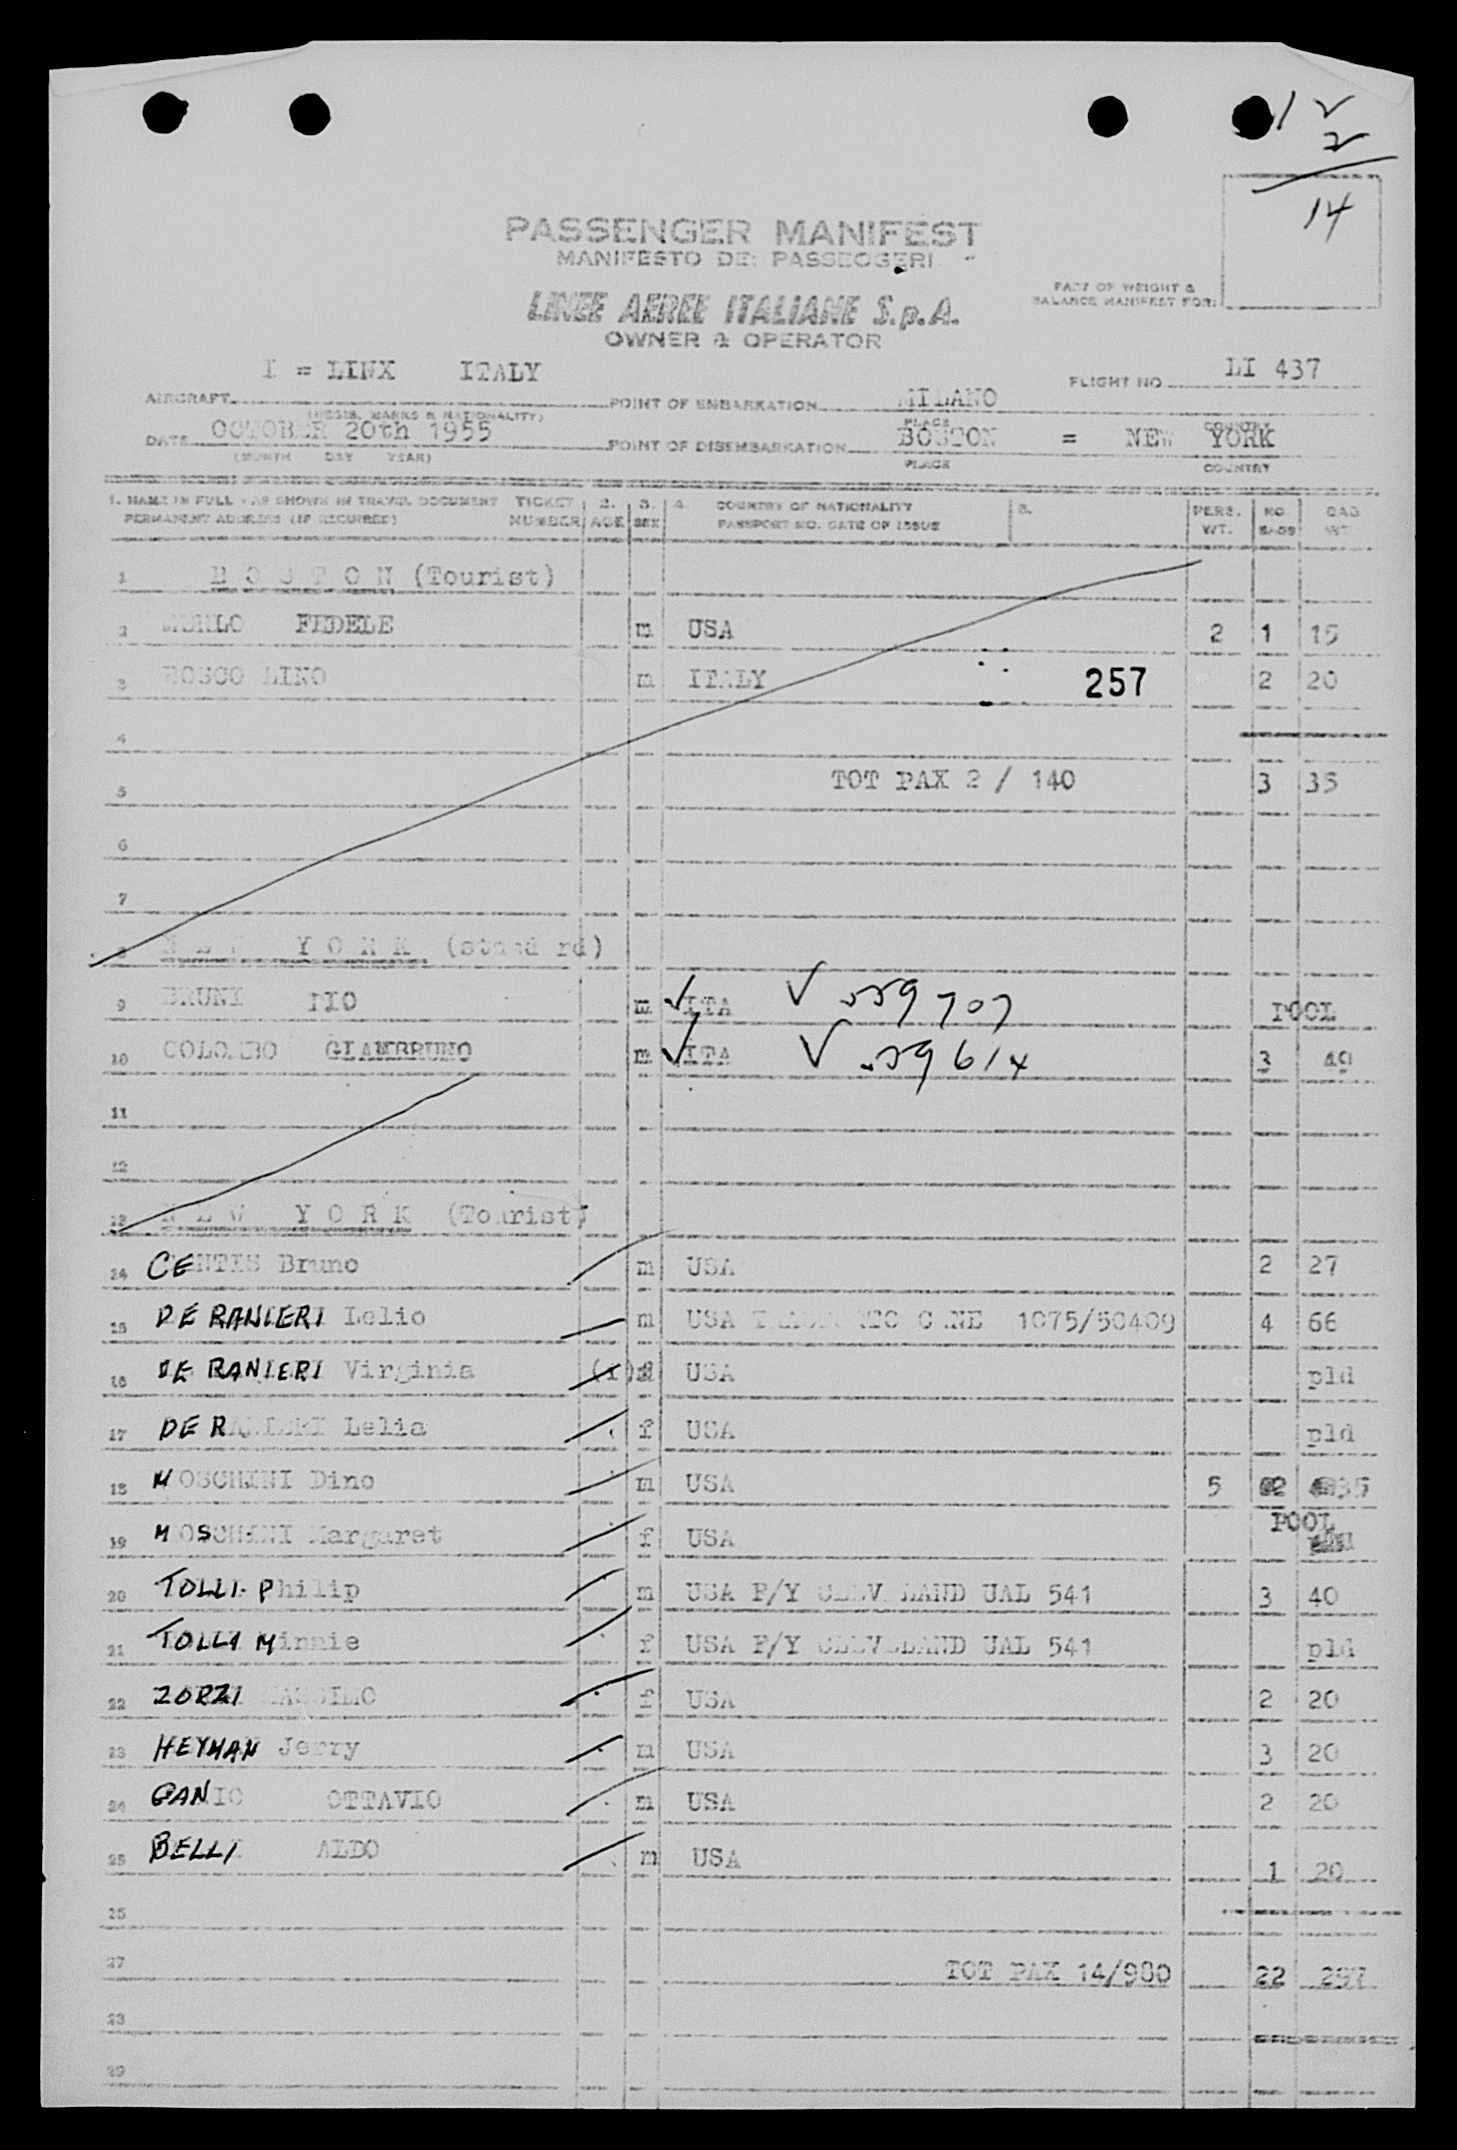 12
2
14
PASSENGER MANIFEST
MANIFESTO DEI PASSEGGERI
PART OF WEIGHT &
BALANCE MANIFEST FOR:
LINEE AEREE ITALIANE S.p.A.
OWNER & OPERATOR
I = LINX ITALY LI 437
AIRCRAFT POINT OF EMBARKATION MILANO FLIGHT NO
MARKS & NATIONALITY) PLACE COUNTRY
DATE OCTOBER 20th 1955 POINT OF DISEMBARKATION BOSTON = NEW YORK
(MONTH DAY YEAR) PLACE COUNTRY
1. NAME IN FULL - AS SHOWN IN TRAVEL DOCUMENT TICKET 2. 3. 4. COUNTRY OF NATIONALITY 5. PERS. NO. BAG
PERMANENT ADDRESS (IF REQUIRED) NUMBER AGE SEX PASSPORT NO. DATE OF ISSUE WT. BAGS WT
1 BOSTON (Tourist)
2 FEDELE m USA 2 1 15
3 BOSCO LINO m ITALY 257 2 20
4
5 TOT PAX 2 / 140 3 35
6
7
8 NEW YORK (standard)
9 BRUNI PIO m ITA 559707 POOL
10 COLOMBO GIAMBRUNO m ITA 559614 3 49
11
12
13 NEW YORK (Tourist)
14 CENTIS Bruno m USA 2 27
15 DE RANIERI Lelio m USA 1075/50409 4 66
16 DE RANIERI Virginia USA pld
17 DE RANIERI Lelia f USA pld
18 MOSCHINI Dino m USA 5 2 35
19 MOSCHINI Margaret f USA POOL
20 TOLLI Philip m USA F/Y CLEVELAND UAL 541 3 40
21 TOLLI Minnie f USA F/Y CLEVELAND UAL 541 pld
22 ZORZI f USA 2 20
23 HEYMAN Jerry m USA 3 20
24 OTTAVIO m USA 2 20
25 BELLI ALDO m USA 1 20
25
27 TOT PAX 14/980 22 297
28
29